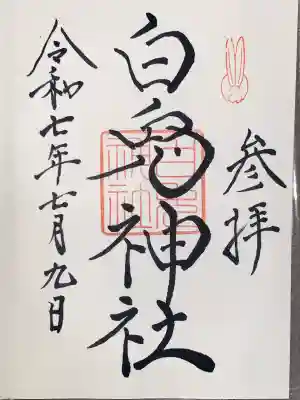 参拝
白兎神社
令和七年七月九日